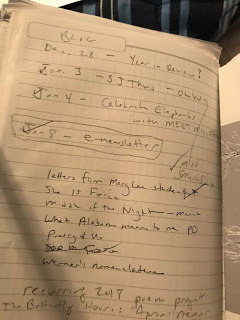 BLOG
Dec. 28 - Year in Review?
Jan. 3 - SJT hrs - OLW?
Jan 4 - Celebrate Elephants
with MEET
also
Jan 8 - enewsletter
letters from Mary Lee students
She Is Fierce
Middle of the Night - March
What Alabama means to me PD
Poetry of Us
Women's nomenclature
recurring 2018 poem project
The Butterfly Hours: "Apron" means